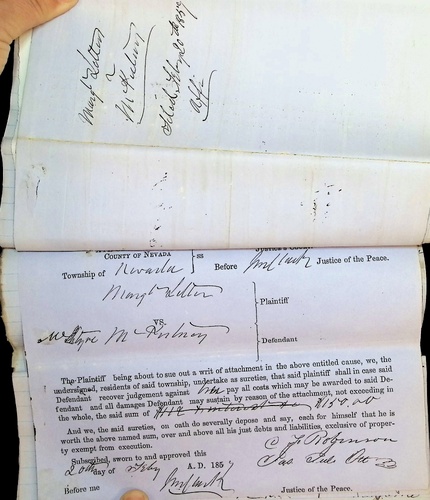 Margt Litten
v
McKelvey
Filed Feby 20th 1857
Affi
COUNTY OF NEVADA } ss
Township of Nevada Before Justice of the Peace.
Margt Litten
Plaintiff
vs.
Defendant
The Plaintiff being about to sue out a writ of attachment in the above entitled cause, we, the
undersigned, residents of said township, undertake as sureties, that said plaintiff shall in case said
Defendant recover judgment against her pay all costs which may be awarded to said De-
fendant and all damages Defendant may sustain by reason of the attachment, not exceeding in
the whole, the said sum of $150.00
And we, the said sureties, on oath do severally depose and say, each for himself that he is
worth the above named sum, over and above all his just debts and liabilities, exclusive of proper-
ty exempt from execution.
C F Robinson
Subscribed, sworn to and approved this
20th day of Feby A. D. 185
Before me Justice of the Peace.